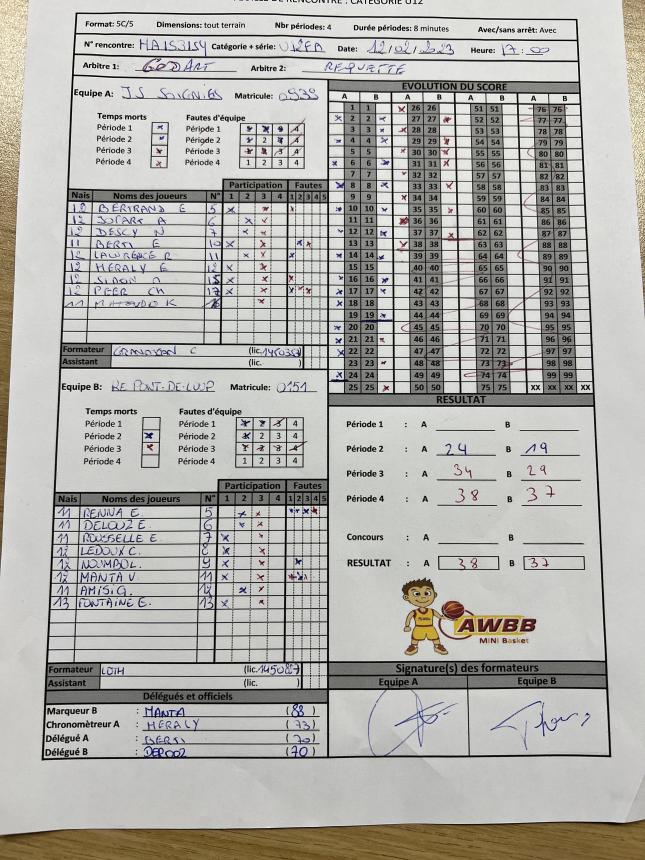 FEUILLE DE RENCONTRE : CATEGORIE U12
Format: 5C/5 Dimensions: tout terrain Nbr périodes: 4 Durée périodes: 8 minutes Avec/sans arrêt: Avec
N° rencontre: Catégorie + série: Date: 12/02/2023 Heure: 17:00
Arbitre 1: GODART Arbitre 2: REQUETTE
Equipe A: JS SOIGNIES Matricule:
Temps morts Fautes d'équipe
Période 1 Période 1 1 2 3 4
Période 2 Période 2 1 2 3 4
Période 3 Période 3 1 2 3 4
Période 4 Période 4 1 2 3 4
Participation Fautes
Nais Noms des joueurs N° 1 2 3 4 1 2 3 4 5
12 BERTRAND E 5
12 A 6
12 DESCY N 7
11 BERTI E 10
12 LAWRENCE R 11
12 HERALY E 12
12 SIMON 15
12 PEER CH 17
11 K
Formateur C (lic.
Assistant
Equipe B: RE PONT-DE-LOUP Matricule: 0151
Temps morts Fautes d'équipe
Période 1 Période 1 1 2 3 4
Période 2 Période 2 1 2 3 4
Période 3 Période 3 1 2 3 4
Période 4 Période 4 1 2 3 4
Participation Fautes
Nais Noms des joueurs N° 1 2 3 4 1 2 3 4 5
11 RENNA E. 5
11 DELOUZE E. 6
11 ROUSSELLE E. 7
12 LEDOUX C. 8
12 9
12 MANTA V. 11
11 AMISI G. 12
13 FONTAINE E. 13
Formateur LOTH (lic.
Assistant (lic. )
Délégués et officiels
Marqueur B : MANTA (88)
Chronomètreur A : HERALY (73)
Délégué A : BERTI (70)
Délégué B : (70)
EVOLUTION DU SCORE
A B A B A B A B
1 1 26 26 51 51 76 76
2 2 27 27 52 52 77 77
3 3 28 28 53 53 78 78
4 4 29 29 54 54 79 79
5 5 30 30 55 55 80 80
6 6 31 31 56 56 81 81
7 7 32 32 57 57 82 82
8 8 33 33 58 58 83 83
9 9 34 34 59 59 84 84
10 10 35 35 60 60 85 85
11 11 36 36 61 61 86 86
12 12 37 37 62 62 87 87
13 13 38 38 63 63 88 88
14 14 39 39 64 64 89 89
15 15 40 40 65 65 90 90
16 16 41 41 66 66 91 91
17 17 42 42 67 67 92 92
18 18 43 43 68 68 93 93
19 19 44 44 69 69 94 94
20 20 45 45 70 70 95 95
21 21 46 46 71 71 96 96
22 22 47 47 72 72 97 97
23 23 48 48 73 73 98 98
24 24 49 49 74 74 99 99
25 25 50 50 75 75 XX XX XX XX
RESULTAT
Période 1 : A B
Période 2 : A 24 B 19
Période 3 : A 34 B 29
Période 4 : A 38 B 37
Concours : A B
RESULTAT : A 38 B 37
AWBB
MINI Basket
Signature(s) des formateurs
Equipe A Equipe B